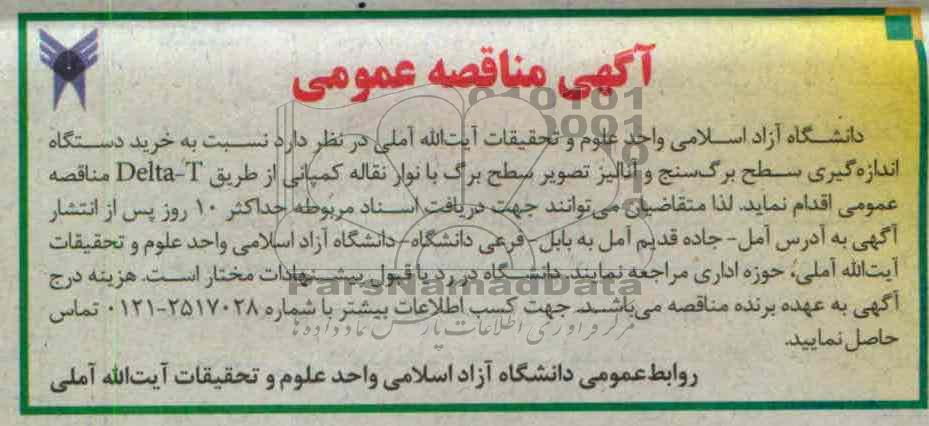 آگهی مناقصه عمومی
دانشگاه آزاد اسلامی واحد علوم و تحقیقات آیت‌الله آملی در نظر دارد نسبت به خرید دستگاه
اندازه‌گیری سطح برگ‌سنج و آنالیز تصویر سطح برگ با نوار نقاله کمپانی از طریق Delta-T مناقصه
عمومی اقدام نماید. لذا متقاضیان می‌توانند جهت دریافت اسناد مربوطه حداکثر ۱۰ روز پس از انتشار
آگهی به آدرس آمل- جاده قدیم آمل به بابل- فرعی دانشگاه- دانشگاه آزاد اسلامی واحد علوم و تحقیقات
آیت‌الله آملی، حوزه اداری مراجعه نمایند. دانشگاه در رد یا قبول پیشنهادات مختار است. هزینه درج
آگهی به عهده برنده مناقصه می‌باشد. جهت کسب اطلاعات بیشتر با شماره ۲۵۱۷۰۲۸-۰۱۲۱ تماس
حاصل نمایید.
روابط عمومی دانشگاه آزاد اسلامی واحد علوم و تحقیقات آیت‌الله آملی
ParsNamadData
مرکز فرآوری اطلاعات پارس نماد داده ها